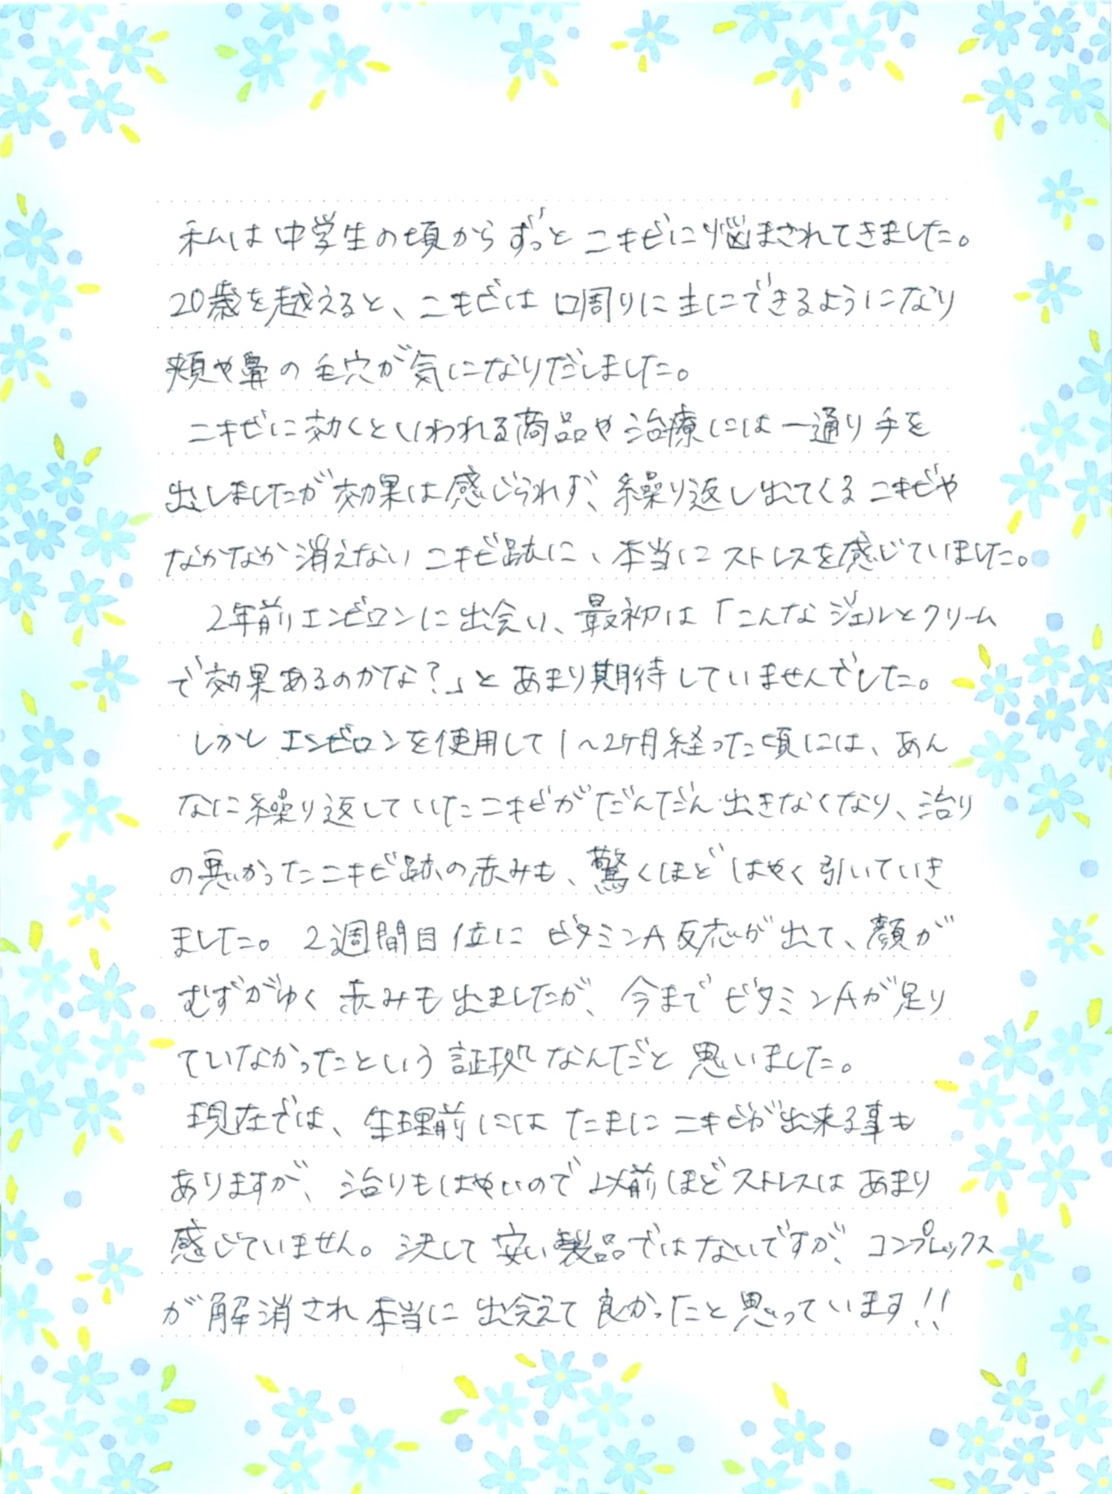 私は中学生の頃からずっとニキビに悩まされてきました。
20歳を越えると、ニキビは口周りに主にできるようになり
頬や鼻の毛穴が気になりだしました。
ニキビに効くといわれる商品や治療には一通り手を
出しましたが効果は感じられず、繰り返し出てくるニキビや
なかなか消えないニキビ跡に、本当にストレスを感じていました。
2年前エンビロンに出会い、最初は「こんなジェルとクリーム
で効果あるのかな?」とあまり期待していませんでした。
しかしエンビロンを使用して1〜2ヶ月経った頃には、あん
なに繰り返していたニキビがだんだん出きなくなり、治り
の悪かったニキビ跡の赤みも、驚くほどはやく引いていき
ました。2週間目位にビタミンA反応が出て、顔が
むずがゆく赤みも出ましたが、今までビタミンAが足り
ていなかったという証拠なんだと思いました。
現在では、生理前にはたまにニキビが出来る事も
ありますが、治りもはやいので以前ほどストレスはあまり
感じていません。決して安い製品ではないですが、コンプレックス
が解消され本当に出会えて良かったと思っています!!